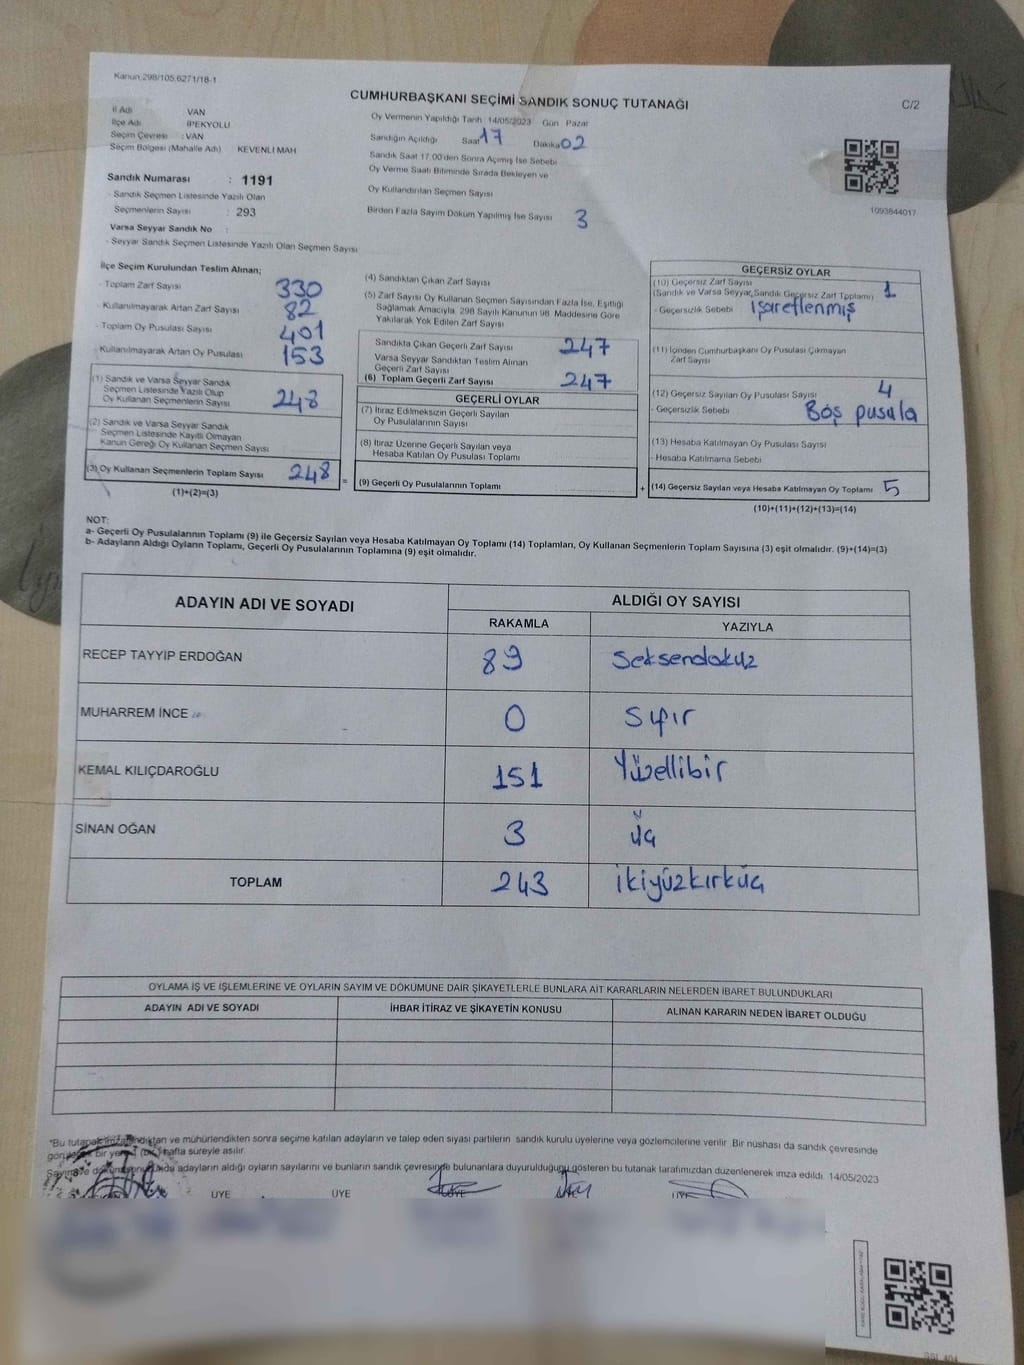 Kanun:298/105,6271/18-1
CUMHURBAŞKANI SEÇİMİ SANDIK SONUÇ TUTANAĞI
C/2
İl Adı VAN
İlçe Adı İPEKYOLU
Seçim Çevresi :VAN
Seçim Bölgesi (Mahalle Adı) KEVENLİ MAH
Oy Vermenin Yapıldığı Tarih :14/05/2023 Gün Pazar
Sandığın Açıldığı Saat 17 Dakika 02
Sandık Saat 17.00'den Sonra Açımış İse Sebebi
Oy Verme Saati Bitiminde Sırada Bekleyen ve
Oy Kullandırılan Seçmen Sayısı
Birden Fazla Sayım Döküm Yapılmış İse Sayısı 3
1093844017
Sandık Numarası : 1191
- Sandık Seçmen Listesinde Yazılı Olan
Seçmenlerin Sayısı : 293
Varsa Seyyar Sandık No :
- Seyyar Sandık Seçmen Listesinde Yazılı Olan Seçmen Sayısı
İlçe Seçim Kurulundan Teslim Alınan;
- Toplam Zarf Sayısı 330
- Kullanılmayarak Artan Zarf Sayısı 82
- Toplam Oy Pusulası Sayısı 401
- Kullanılmayarak Artan Oy Pusulası 153
(1) Sandık ve Varsa Seyyar Sandık
Seçmen Listesinde Yazılı Olup
Oy Kullanan Seçmenlerin Sayısı 248
(2) Sandık ve Varsa Seyyar Sandık
Seçmen Listesinde Kayıtlı Olmayan
Kanun Gereği Oy Kullanan Seçmen Sayısı
(3) Oy Kullanan Seçmenlerin Toplam Sayısı 248 =
(1)+(2)=(3)
(4) Sandıktan Çıkan Zarf Sayısı
(5) Zarf Sayısı Oy Kullanan Seçmen Sayısından Fazla İse, Eşitliği
Sağlamak Amacıyla, 298 Sayılı Kanunun 98. Maddesine Göre
Yakılarak Yok Edilen Zarf Sayısı
Sandıkta Çıkan Geçerli Zarf Sayısı 247
Varsa Seyyar Sandıktan Teslim Alınan
Geçerli Zarf Sayısı
(6) Toplam Geçerli Zarf Sayısı 247
GEÇERLİ OYLAR
(7) İtiraz Edilmeksizin Geçerli Sayılan
Oy Pusulalarının Sayısı
(8) İtiraz Üzerine Geçerli Sayılan veya
Hesaba Katılan Oy Pusulası Toplamı
(9) Geçerli Oy Pusulalarının Toplamı +
GEÇERSİZ OYLAR
(10) Geçersiz Zarf Sayısı
(Sandık ve Varsa Seyyar Sandık Geçersiz Zarf Toplamı) 1
- Geçersizlik Sebebi işaretlenmiş
(11) İçinden Cumhurbaşkanı Oy Pusulası Çıkmayan
Zarf Sayısı
(12) Geçersiz Sayılan Oy Pusulası Sayısı 4
- Geçersizlik Sebebi Boş pusula
(13) Hesaba Katılmayan Oy Pusulası Sayısı
- Hesaba Katılmama Sebebi
(14) Geçersiz Sayılan veya Hesaba Katılmayan Oy Toplamı 5
(10)+(11)+(12)+(13)=(14)
NOT:
a- Geçerli Oy Pusulalarının Toplamı (9) ile Geçersiz Sayılan veya Hesaba Katılmayan Oy Toplamı (14) Toplamları, Oy Kullanan Seçmenlerin Toplam Sayısına (3) eşit olmalıdır. (9)+(14)=(3)
b- Adayların Aldığı Oyların Toplamı, Geçerli Oy Pusulalarının Toplamına (9) eşit olmalıdır.
ADAYIN ADI VE SOYADI
ALDIĞI OY SAYISI
RAKAMLA YAZIYLA
RECEP TAYYİP ERDOĞAN 89 Seksendokuz
MUHARREM İNCE 0 Sıfır
KEMAL KILIÇDAROĞLU 151 Yüzellibir
SİNAN OĞAN 3 üç
TOPLAM 243 ikiyüzkırküç
OYLAMA İŞ VE İŞLEMLERİNE VE OYLARIN SAYIM VE DÖKÜMÜNE DAİR ŞİKAYETLERLE BUNLARA AİT KARARLARIN NELERDEN İBARET BULUNDUKLARI
ADAYIN ADI VE SOYADI İHBAR İTİRAZ VE ŞİKAYETİN KONUSU ALINAN KARARIN NEDEN İBARET OLDUĞU
"Bu tutanak imzalandıktan ve mühürlendikten sonra seçime katılan adayların ve talep eden siyasi partilerin sandık kurulu üyelerine veya gözlemcilerine verilir. Bir nüshası da sandık çevresinde
bir yere (bir) hafta süreyle asılır.
adayların aldığı oyların sayılarını ve bunların sandık çevresinde bulunanlara duyurulduğunu gösteren bu tutanak tarafımızdan düzenlenerek imza edildi. 14/05/2023
ÜYE ÜYE ÜYE